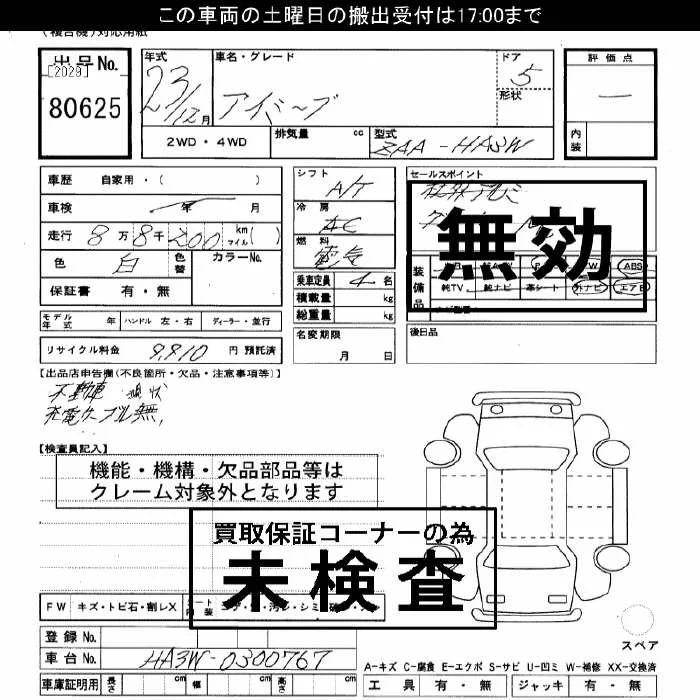 この車両の土曜日の搬出受付は17:00まで
(複合機)対応用紙
出品No.
[2029]
80625
年式
23/12月
車名・グレード
アイミーブ
ドア
5
形状
評価点
ー
内装
2WD・4WD
排気量 cc
型式
ZAA-HA3W
車歴 自家用・( )
車検 年 月
走行 8万8千200 km マイル( )
色 白 色替 カラーNo.
保証書 有・無
シフト
A/T
冷房
AC
燃料
電気
乗車定員 4名
積載量 kg
総重量 kg
セールスポイント
社外アルミ
無効
装備品
ABS
純TV 純ナビ 革シート 外ナビ エアB
モデル年式 年 ハンドル 左・右 ディーラー・並行
名変期限
月 日
後日品
リサイクル料金 9,910 円 預託済
【出品店申告欄(不良箇所・欠品・注意事項等)】
不動車 現状
充電ケーブル無,
【検査員記入】
機能・機構・欠品部品等は
クレーム対象外となります
買取保証コーナーの為
未検査
FW キズ・トビ石・割レX シート内装
登録No.
車台No. HA3W-0300767
スペア
A-キズ C-腐食 E-エクボ S-サビ U-凹ミ W-補修 XX-交換済
車庫証明用 長さ cm 幅 cm 高さ cm
工具 有・無 ジャッキ 有・無